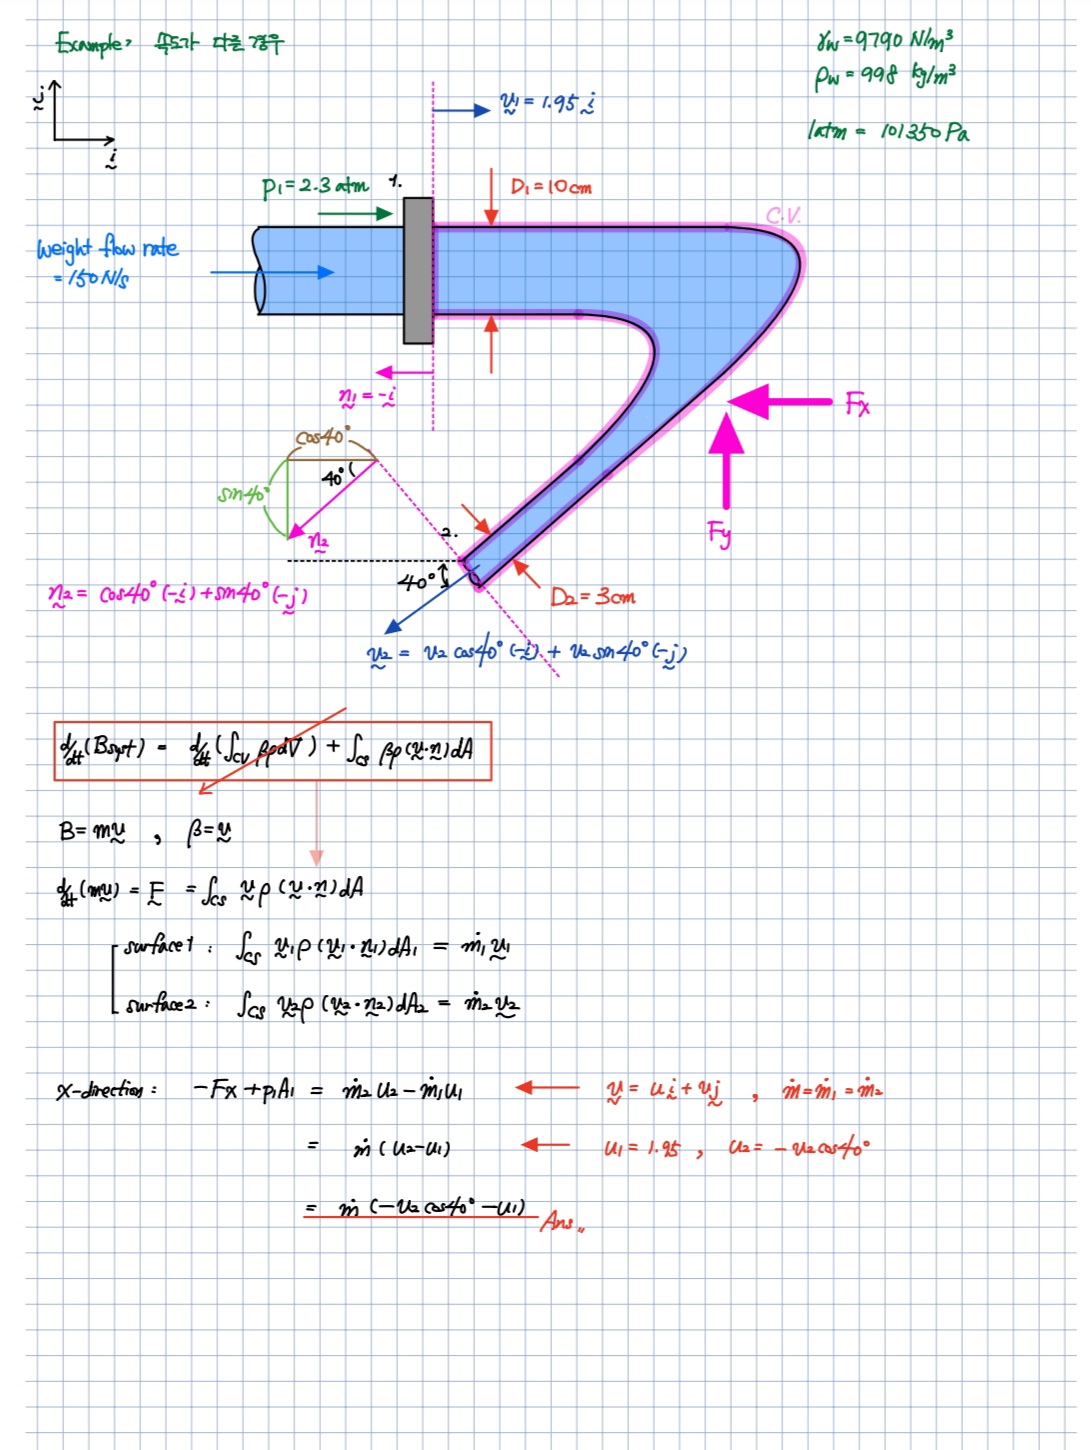 Example> 속도가 다른 경우
γw = 9790 N/m³
ρw = 998 kg/m³
1atm = 101350 Pa
j
i
v1 = 1.95 i
p1 = 2.3 atm
1.
D1 = 10cm
C.V.
Weight flow rate
= 150 N/s
n1 = -i
Fx
Fy
cos40°
sin40°
40°
n2
2.
40°
D2 = 3cm
n2 = cos40° (-i) + sin40° (-j)
v2 = v2 cos40° (-i) + v2 sin40° (-j)
d/dt (Bsyst) = d/dt (∫cv βρdV) + ∫cs βρ(v·n)dA
B = mv , β = v
d/dt (mv) = F = ∫cs vρ(v·n)dA
surface1 : ∫cs v1ρ(v1·n1)dA1 = ṁ1v1
surface2 : ∫cs v2ρ(v2·n2)dA2 = ṁ2v2
x-direction : -Fx + p1A1 = ṁ2u2 - ṁ1u1 v = ui + vj , ṁ = ṁ1 = ṁ2
= ṁ(u2-u1) u1 = 1.95 , u2 = -v2cos40°
= ṁ(-v2 cos40° - u1) Ans..